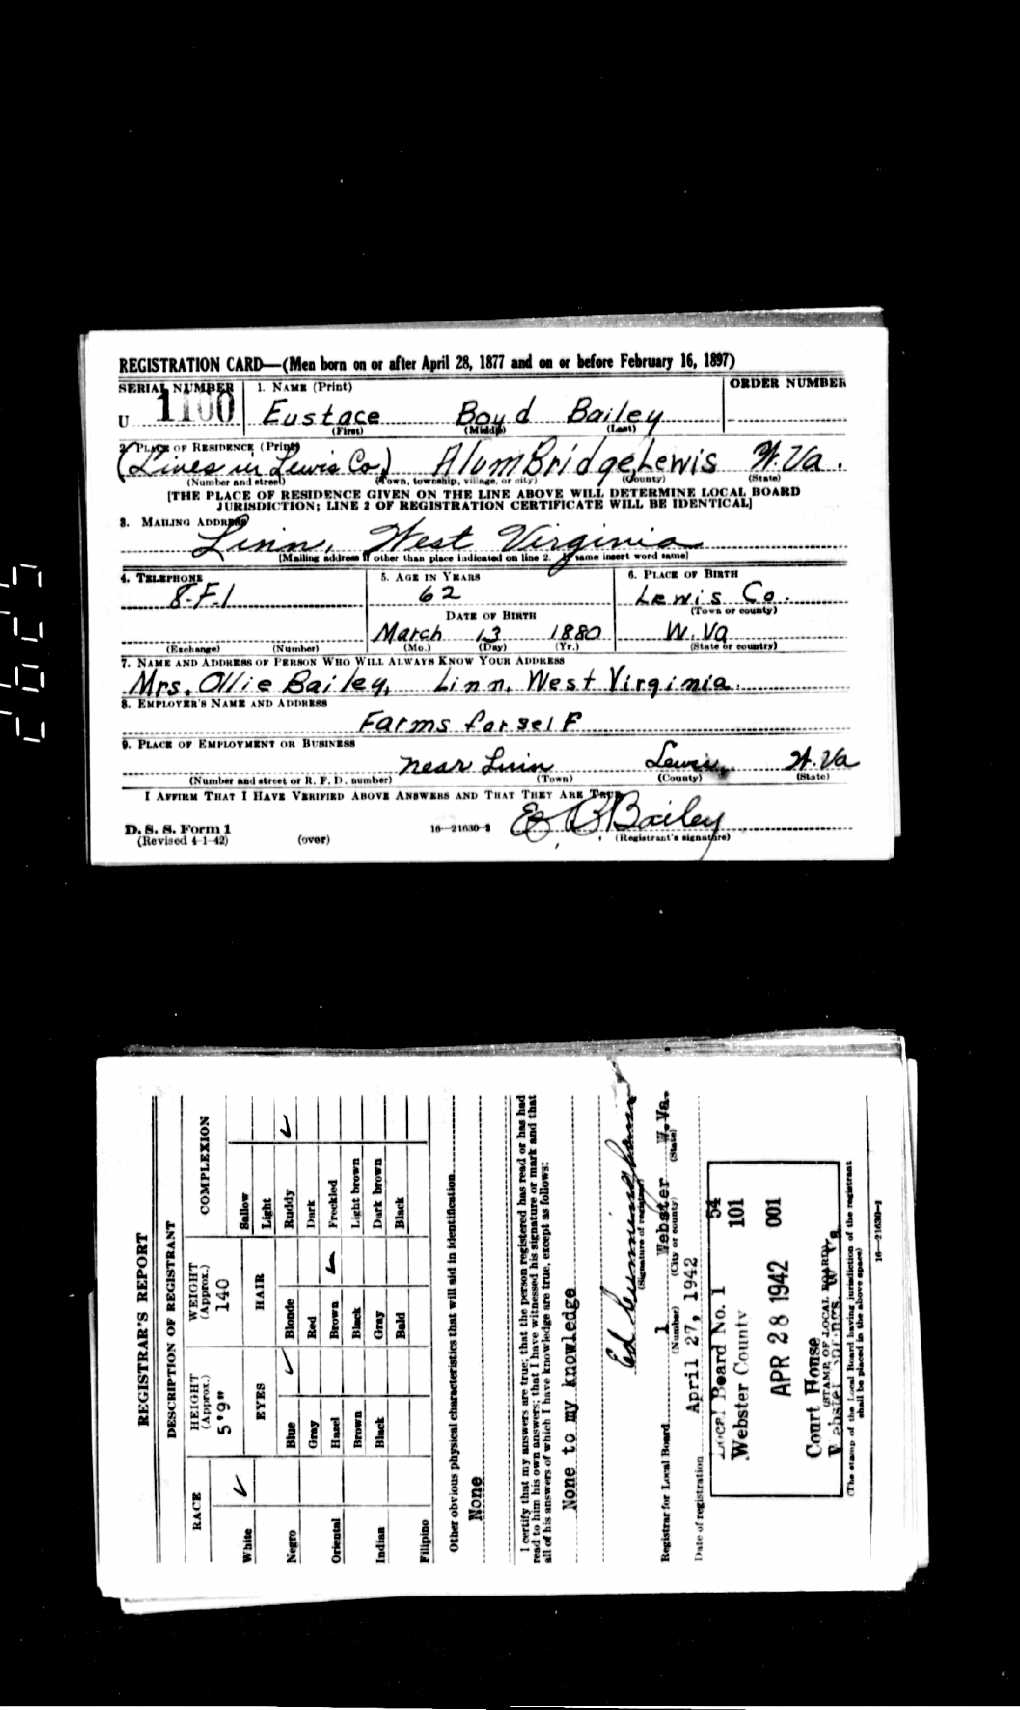 REGISTRATION CARD—(Men born on or after April 28, 1877 and on or before February 16, 1897)
SERIAL NUMBER 1. NAME (Print) ORDER NUMBER
U 1100 Eustace Boyd Bailey
(First) (Middle) (Last)
2. PLACE OF RESIDENCE (Print)
(Lives in Lewis Co.) Alum Bridge Lewis W. Va.
(Number and street) (Town, township, village, or city) (County) (State)
[THE PLACE OF RESIDENCE GIVEN ON THE LINE ABOVE WILL DETERMINE LOCAL BOARD
JURISDICTION; LINE 2 OF REGISTRATION CERTIFICATE WILL BE IDENTICAL]
3. MAILING ADDRESS
Linn, West Virginia
[Mailing address if other than place indicated on line 2. If same insert word same]
4. TELEPHONE 5. AGE IN YEARS 6. PLACE OF BIRTH
8.F.1 62 Lewis Co.
(Town or county)
DATE OF BIRTH
March 13 1880 W. Va
(Exchange) (Number) (Mo.) (Day) (Yr.) (State or country)
7. NAME AND ADDRESS OF PERSON WHO WILL ALWAYS KNOW YOUR ADDRESS
Mrs. Ollie Bailey, Linn, West Virginia.
8. EMPLOYER'S NAME AND ADDRESS
Farms for self
9. PLACE OF EMPLOYMENT OR BUSINESS
near Linn Lewis, W. Va
(Number and street or R. F. D. number) (Town) (County) (State)
I AFFIRM THAT I HAVE VERIFIED ABOVE ANSWERS AND THAT THEY ARE TRUE.
D. S. S. Form 1 16—21630-2 E. B. Bailey
(Revised 4-1-42) (over) (Registrant's signature)
REGISTRAR'S REPORT
DESCRIPTION OF REGISTRANT
RACE HEIGHT (Approx.) WEIGHT (Approx.) COMPLEXION
5'9" 140
White ✓ EYES HAIR Sallow
Light
Negro Blue ✓ Blonde Ruddy ✓
Gray Red Dark
Oriental Hazel Brown ✓ Freckled
Brown Black Light brown
Indian Black Gray Dark brown
Bald Black
Filipino
Other obvious physical characteristics that will aid in identification
None
I certify that my answers are true; that the person registered has read or has had
read to him his own answers; that I have witnessed his signature or mark and that
all of his answers of which I have knowledge are true, except as follows:
None to my knowledge
Ed Cunningham
(Signature of registrar)
Registrar for Local Board 1 Webster W. Va.
(Number) (City or county) (State)
Date of registration April 27, 1942
Local Board No. 1 54
Webster County 101
APR 28 1942 001
Court House
(STAMP OF LOCAL BOARD)
Webster Springs, W Va
(The stamp of the Local Board having jurisdiction of the registrant
shall be placed in the above space)
16—21630-2